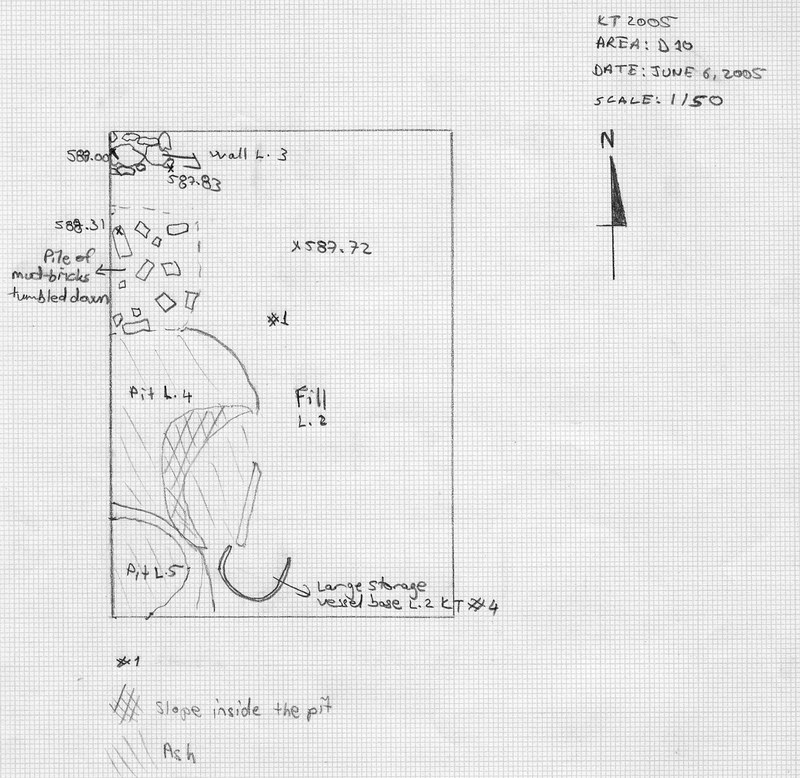 KT 2005
AREA: D10
DATE: JUNE 6, 2005
SCALE: 1/50
N
588.00
Wall L. 3
x 587.83
588.31
x
x587.72
Pile of
mud-bricks
tumbled down
#1
Pit L.4
Fill
L. 2
Pit L.5
Large storage
vessel base L.2 KT #4
#1
Slope inside the pit
Ash